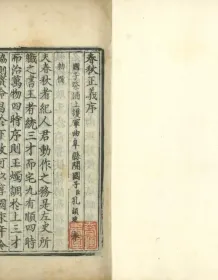 春秋正義序
國子祭酒上護軍曲阜縣開國子臣孔穎達
勑撰
夫春秋者紀人君動作之務是左史所
職之書王者統三才而宅九有順四時
而治萬物四時序則玉燭調於上三才
協則寶命昌於下故可以享國永年令